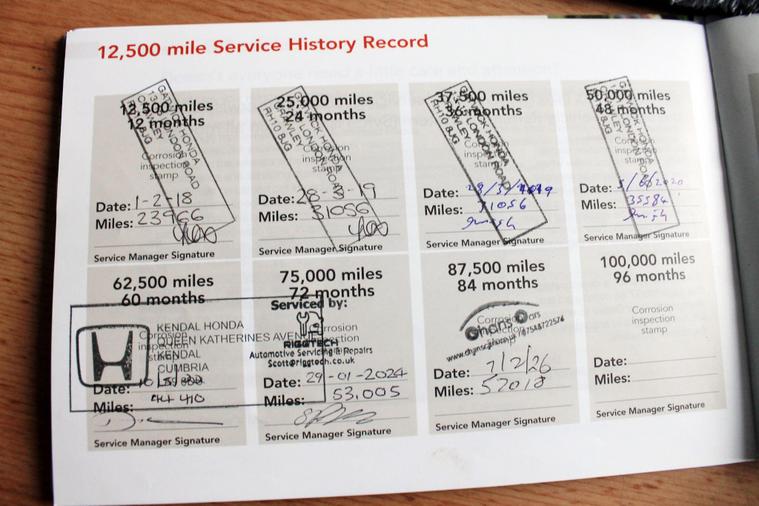 12,500 mile Service History Record
12,500 miles
12 months
Corrosion
inspection
stamp
Date: 1-2-18
Miles: 23966
Service Manager Signature
25,000 miles
24 months
Corrosion
inspection
stamp
CRAWLEY
RH10 8JG
Date: 28-3-19
Miles: 31056
Service Manager Signature
37,500 miles
36 months
HONDA
LONDON ROAD
RH10 8JG
Date:
Miles: 31056
Service Manager Signature
50,000 miles
48 months
Corrosion
inspection
stamp
Date: 5/6/2020
Miles: 35584
Service Manager Signature
62,500 miles
60 months
KENDAL HONDA
QUEEN KATHERINES AVENUE
KENDAL
CUMBRIA
Date:
Miles: 44 410
Service Manager Signature
75,000 miles
72 months
Serviced by:
RIGGTECH
Automotive Servicing & Repairs
Scott@riggtech.co.uk
Date: 29-01-2024
Miles: 53,005
Service Manager Signature
87,500 miles
84 months
Corrosion
inspection
Cars
Date: 7/2/26
Miles: 52018
Service Manager Signature
100,000 miles
96 months
Corrosion
inspection
stamp
Date:
Miles:
Service Manager Signature